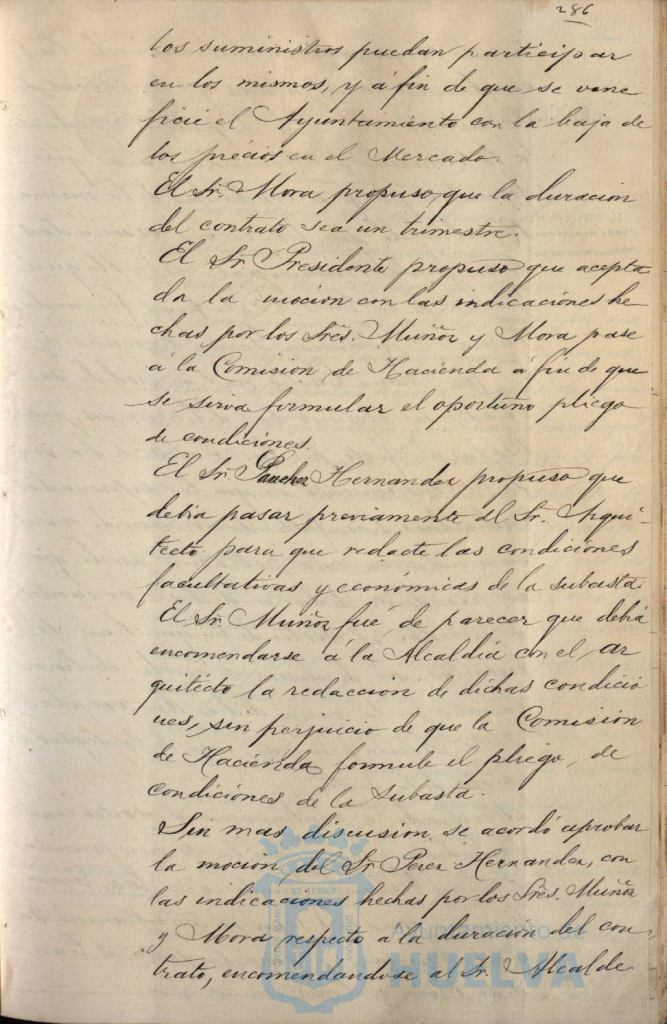 286
los suministros puedan participar
en los mismos, y á fin de que se vene
ficie el Ayuntamiento con la baja de
los precios en el Mercado.
El Sr. Mora propuso, que la duracion
del contrato sea un trimestre.
El Sr. Presidente propuso que acepta
da la mocion con las indicaciones he
chas por los Srēs. Muñoz y Mora pase
á la Comision de Hacienda á fin de que
se sirva formular el oportuno pliego
de condiciones.
El Sr. Sanchez Hernandez propuso que
debia pasar previamente al Sr. Arqui-
tecto para que redacte las condiciones
facultativas y económicas de la subasta.
El Sr. Muñoz fué de parecer que debiá
encomendarse á la Alcaldia con el ar
quitecto la redaccion de dichas condicio
nes, sin perjuicio de que la Comision
de Hacienda formule el pliego, de
condiciones de la Subasta.
Sin mas discusion, se acordó aprobar
la mocion, del Sr. Perez Hernandez, con
las indicaciones hechas por los Srēs. Muñoz
y Mora respecto a la duracion del con-
trato, encomendandose al Sr. Alcalde
Ayuntamiento de
HUELVA